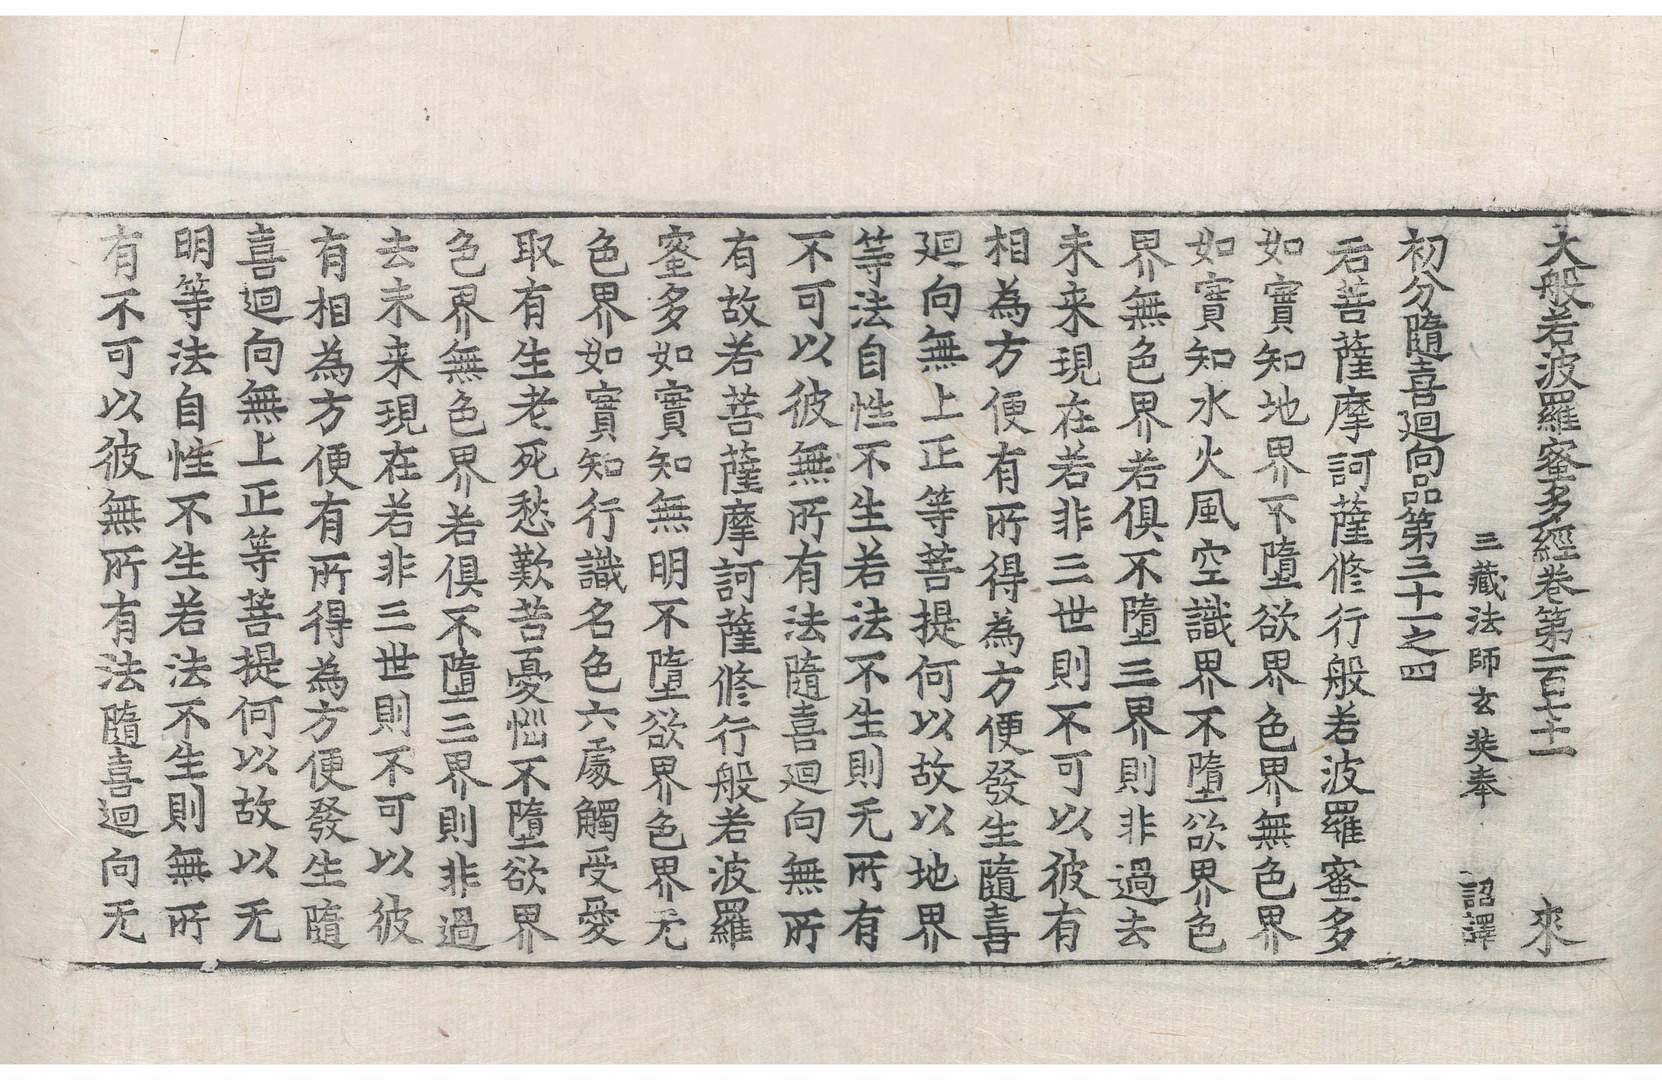 大般若波羅蜜多經卷第一百七十一 來
三藏法師玄奘奉 詔譯
初分隨喜迴向品第三十一之四
若菩薩摩訶薩修行般若波羅蜜多
如實知地界不墮欲界色界無色界
如實知水火風空識界不墮欲界色
界無色界若俱不墮三界則非過去
未来現在若非三世則不可以彼有
相為方便有所得為方便發生隨喜
迴向無上正等菩提何以故以地界
等法自性不生若法不生則无所有
不可以彼無所有法隨喜迴向無所
有故若菩薩摩訶薩修行般若波羅
蜜多如實知無明不墮欲界色界无
色界如實知行識名色六處觸受愛
取有生老死愁歎苦憂惱不墮欲界
色界無色界若俱不墮三界則非過
去未来現在若非三世則不可以彼
有相為方便有所得為方便發生隨
喜迴向無上正等菩提何以故以无
明等法自性不生若法不生則無所
有不可以彼無所有法隨喜迴向无